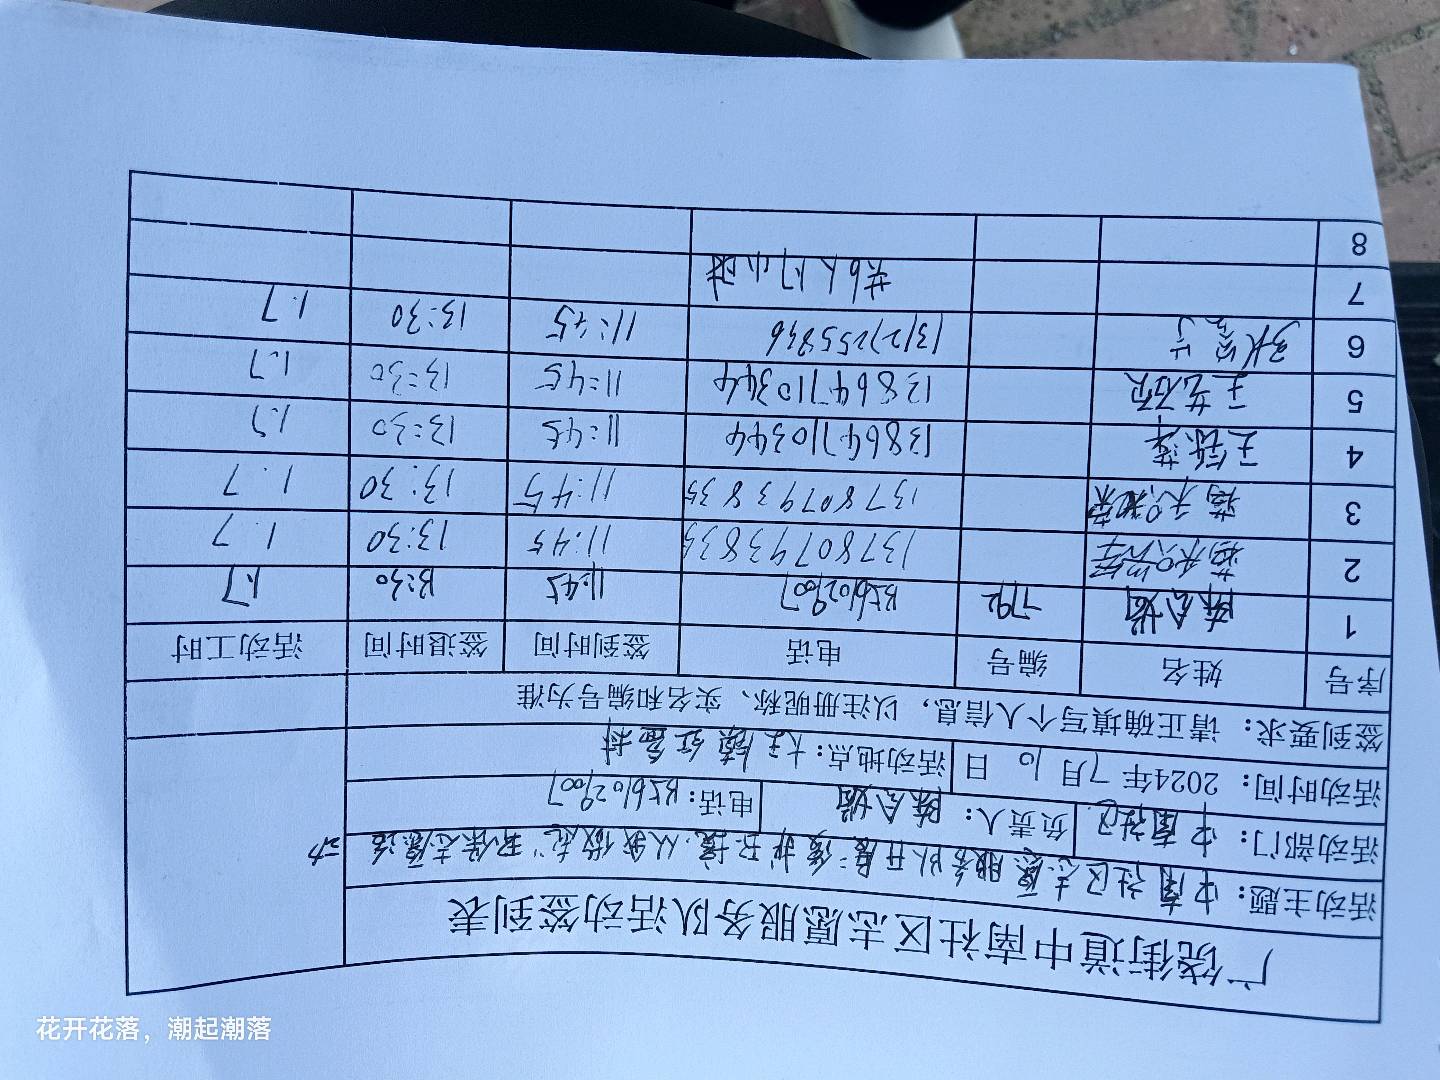 广饶街道中南社区志愿服务队活动签到表
活动主题：中南社区志愿服务队开展"爱护环境 从我做起"环保志愿活动
活动部门：中南社区 负责人：陈会娟 电话：
活动时间：2024年7月10日 活动地点：大王镇红盈村
签到要求：请正确填写个人信息，以注册昵称、实名和编号为准
序号 姓名 编号 电话 签到时间 签退时间 活动工时
1 陈会娟 792 11:45 13:30 1.7
2 13780793835 11:45 13:30 1.7
3 13780793835 11:45 13:30 1.7
4 13864710344 11:45 13:30 1.7
5 13864710344 11:45 13:30 1.7
6 11:45 13:30 1.7
7 共6人 小时
8
花开花落，潮起潮落